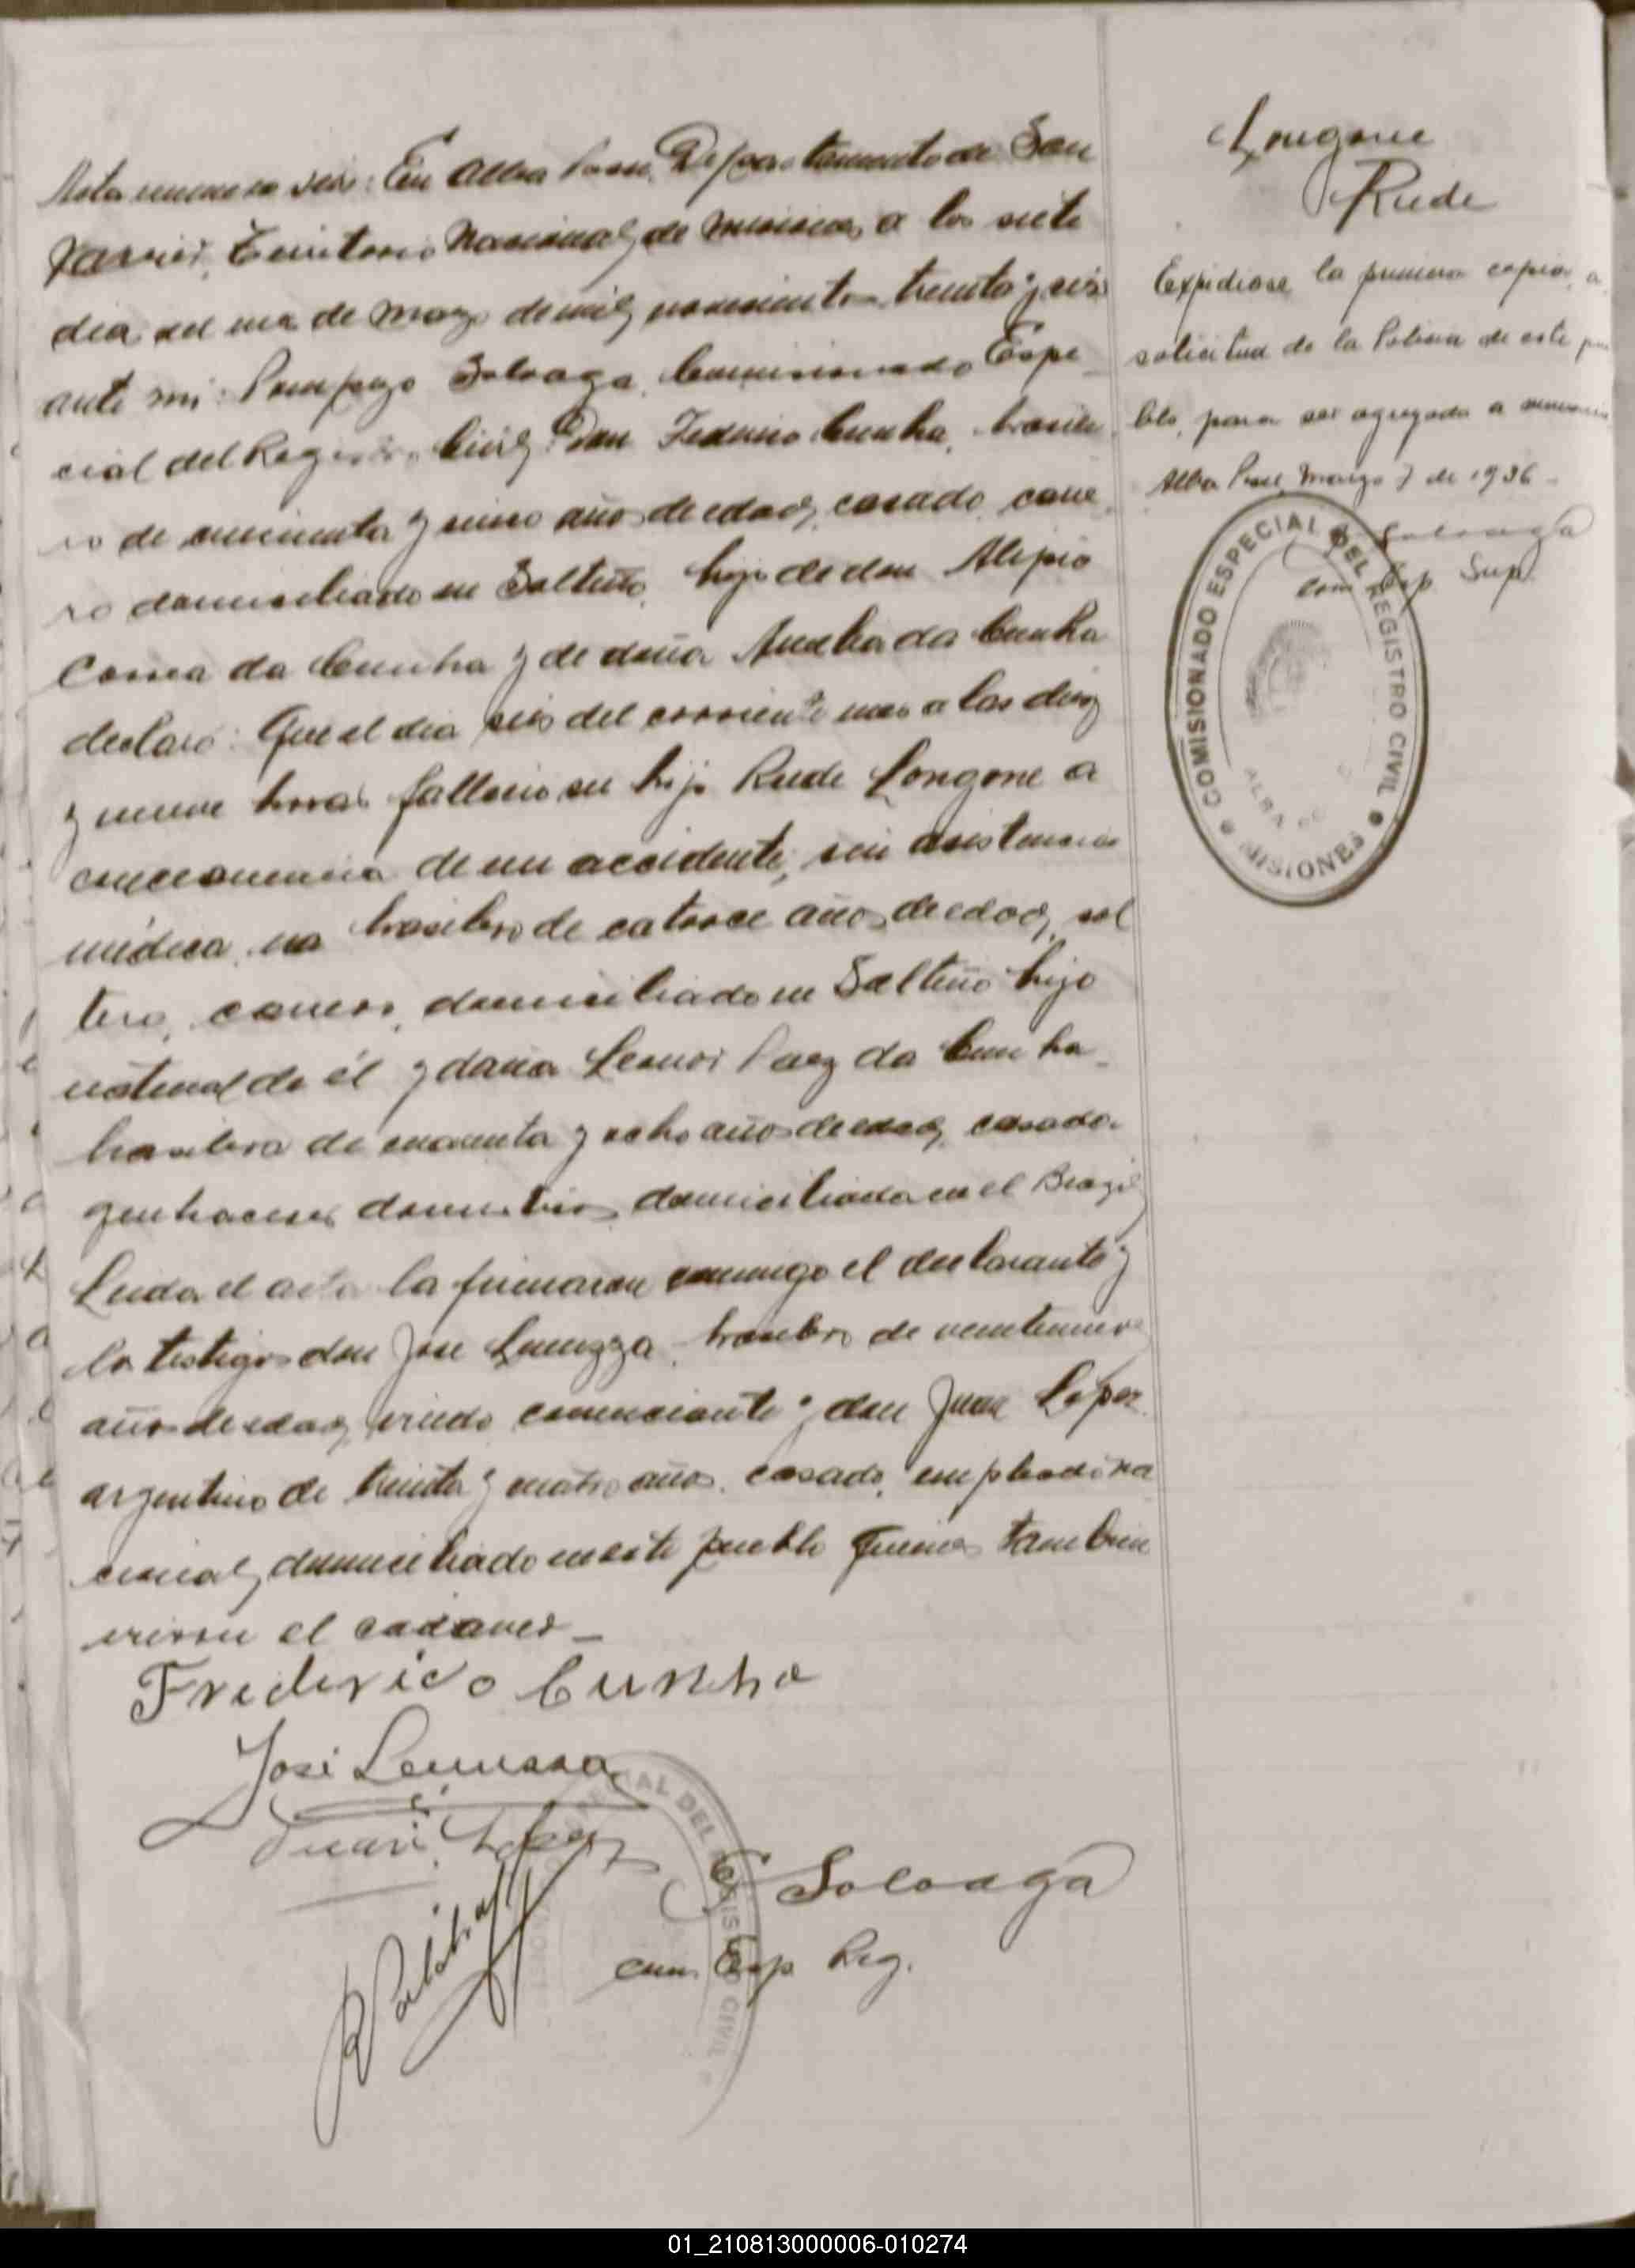 Acta numero seis: En Alba Posse, Departamento de San
Javier, Territorio Nacional de Misiones, a los siete
dias del mes de Marzo de mil novecientos treinta y seis
ante mi: Soloaga, Comisionado Espe
cial del Registro Civil: Don Federico Cunha, brasile
ro de cincuenta y cinco años de edad, casado,
ro domiciliado en Salteño, hijo de don Alipio
Correa da Cunha y de doña da Cunha
declaró: Que el dia seis del corriente mes a las diez
y nueve horas falleció su hijo Rude Longone a
consecuencia de un accidente, sin asistencia
médica, era brasilero de catorce años de edad, sol
tero, domiciliado en Salteño hijo
natural de él y doña Leonor Paez da Cunha
brasilera de cuarenta y ocho años de edad, casada
quehaceres domesticos domiciliada en el Brazil
Leida el acta la firmaron conmigo el declarante y
los testigos don Jose Lemussa brasilero de veintinueve
años de edad, viudo comerciante y don Juan Lopez
argentino de treinta y cuatro años, casado, empleado na
cional, domiciliado en este pueblo quienes tambien
vieron el cadaver_
Frederico Cunha
José Lemussa
Juan Lopez
Soloaga
Com. Esp. Reg.
ESPECIAL DEL REGISTRO CIVIL
Longone
Rude
Expidiose la primera copia, a
solicitud de la Policia de este pue
blo, para ser agregada a
Alba Posse, Marzo 7 de 1936-
Soloaga
Com Esp. Sup.
COMISIONADO ESPECIAL DEL REGISTRO CIVIL
ALBA
MISIONES
01_210813000006-010274